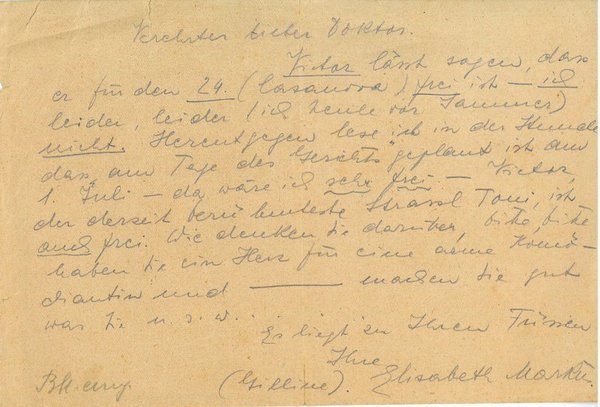 Verehrter lieber Doktor.
Victor lässt sagen, dass
er für den 24. (Casanova) frei ist – ich
leider, leider (ich heule vor Jammer)
nicht. Herentgegen lese ich in der Stunde
dass "am Tage des Gerichts" geplant ist am
1. Juli – da wäre ich sehr frei – Victor,
der derzeit berühmteste Strassl Toni, ist
auch frei. Wie denken Sie darüber, bitte, bitte
haben Sie ein Herz für eine arme Komö-
diantin und ——— machen Sie gut
was Sie u. s. w. ..
Es liegt zu Ihren Füssen
Ihre
(Gilline). Elisabeth Markus.